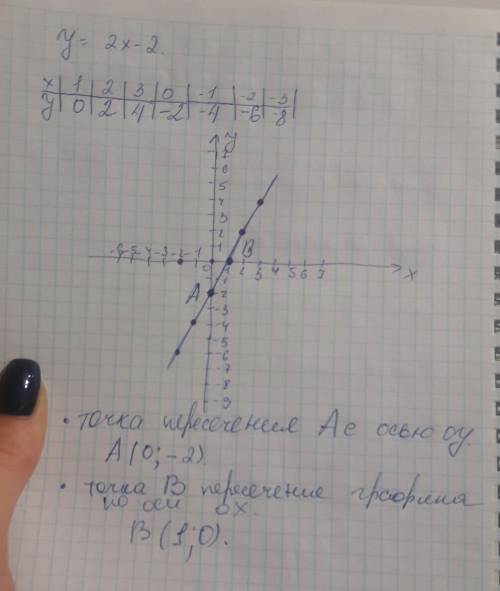 y = 2x-2.
x | 1 | 2 | 3 | 0 | -1 | -2 | -3 |
y | 0 | 2 | 4 | -2 | -4 | -6 | -8 |
y
7
6
5
4
3
2
1
B
-6 -5 -4 -3 -2 -1 0 1 2 3 4 5 6 7 x
-1
A -2
-3
-4
-5
-6
-7
-8
-9
• точка пересечения A с осью oy.
A(0;-2).
• точка B пересечение графика
по оси ox.
B(1;0).